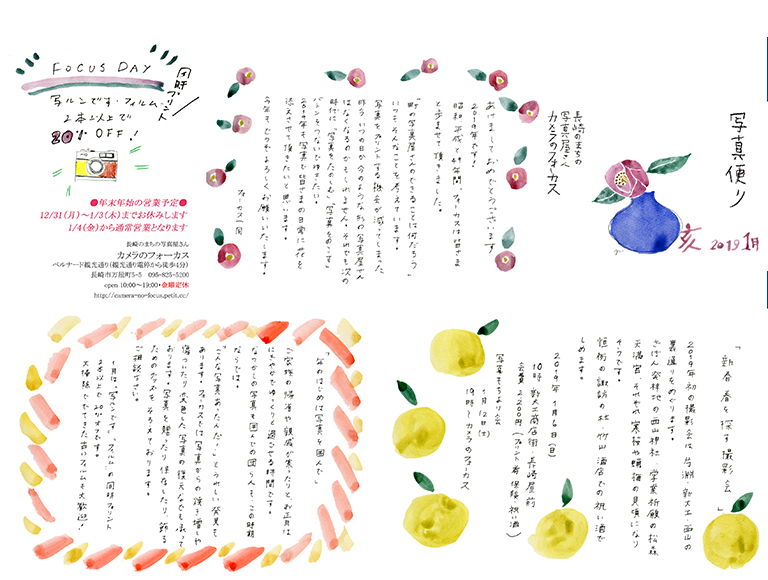 写真便り
亥 2019 1月
長崎のまちの
写真屋さん
カメラのフォーカス
あけましておめでとうございます。
2019年です！
昭和、平成と49年間、フォーカスは皆さま
と歩ませて頂きました。
「町の写真屋さんのできることは何だろう」
いつもそんなことを考えています。
写真をプリントする機会が減ってしまった
昨今、いつの日か今のような形の写真屋さん
はなくなるのかもしれません。それでも次の
時代に「写真をたのしむ」「写真をのこす」
バトンをつないでゆきたい。
2019年も写真で皆さまの日常に花を
添えさせて頂きたいと思います。
今年もどうぞよろしくお願いいたします。
フォーカス一同
FOCUS DAY
同時プリント
写ルンです・フィルム
2本以上で
20% OFF！
●年末年始の営業予定●
12/31（月）～1/3（木）までお休みします
1/4（金）から通常営業となります
長崎のまちの写真屋さん
カメラのフォーカス
ベルナード観光通り（観光通り電停から徒歩4分）
長崎市万屋町5-5 095-825-5200
open 10:00～19:00・金曜定休
http://camera-no-focus.petit.cc/
「新春春を探す撮影会」
2019年初の撮影会は片淵・新大工・西山の
裏通りをめぐります。
ざぼん発祥地の西山神社、学業祈願の松森
天満宮、それぞれ寒桜や蝋梅の見頃になり
そうです。
恒例の諏訪の杜・竹山酒店での祝い酒で
しめます。
2019年1月6日（日）
10時 新大工商店街 長崎屋前
会費2200円（プリント券、保険、祝い酒）
写真もちより会
1月12日（土）
19時～カメラのフォーカス
「年のはじめは写真を囲んで」
ご家族の帰省や親戚が集ったりと、お正月は
にぎやかでゆっくりと過ごせる時間です。
なつかしの写真を囲んでの団らんも、この時期
ならでは。
「こんな写真あったんだ！」とうれしい発見も
あります。フォーカスでは写真からの焼き増しや
傷ついたり変色した写真の復元なども承って
おります。写真を贈ったり保存したり、飾る
ためのグッズもそろえております。
ご相談下さい。
1月は「写ルンです」、フィルムの同時プリント
2本以上で20%オフです。
大掃除ででてきた古いフィルムも大歓迎！